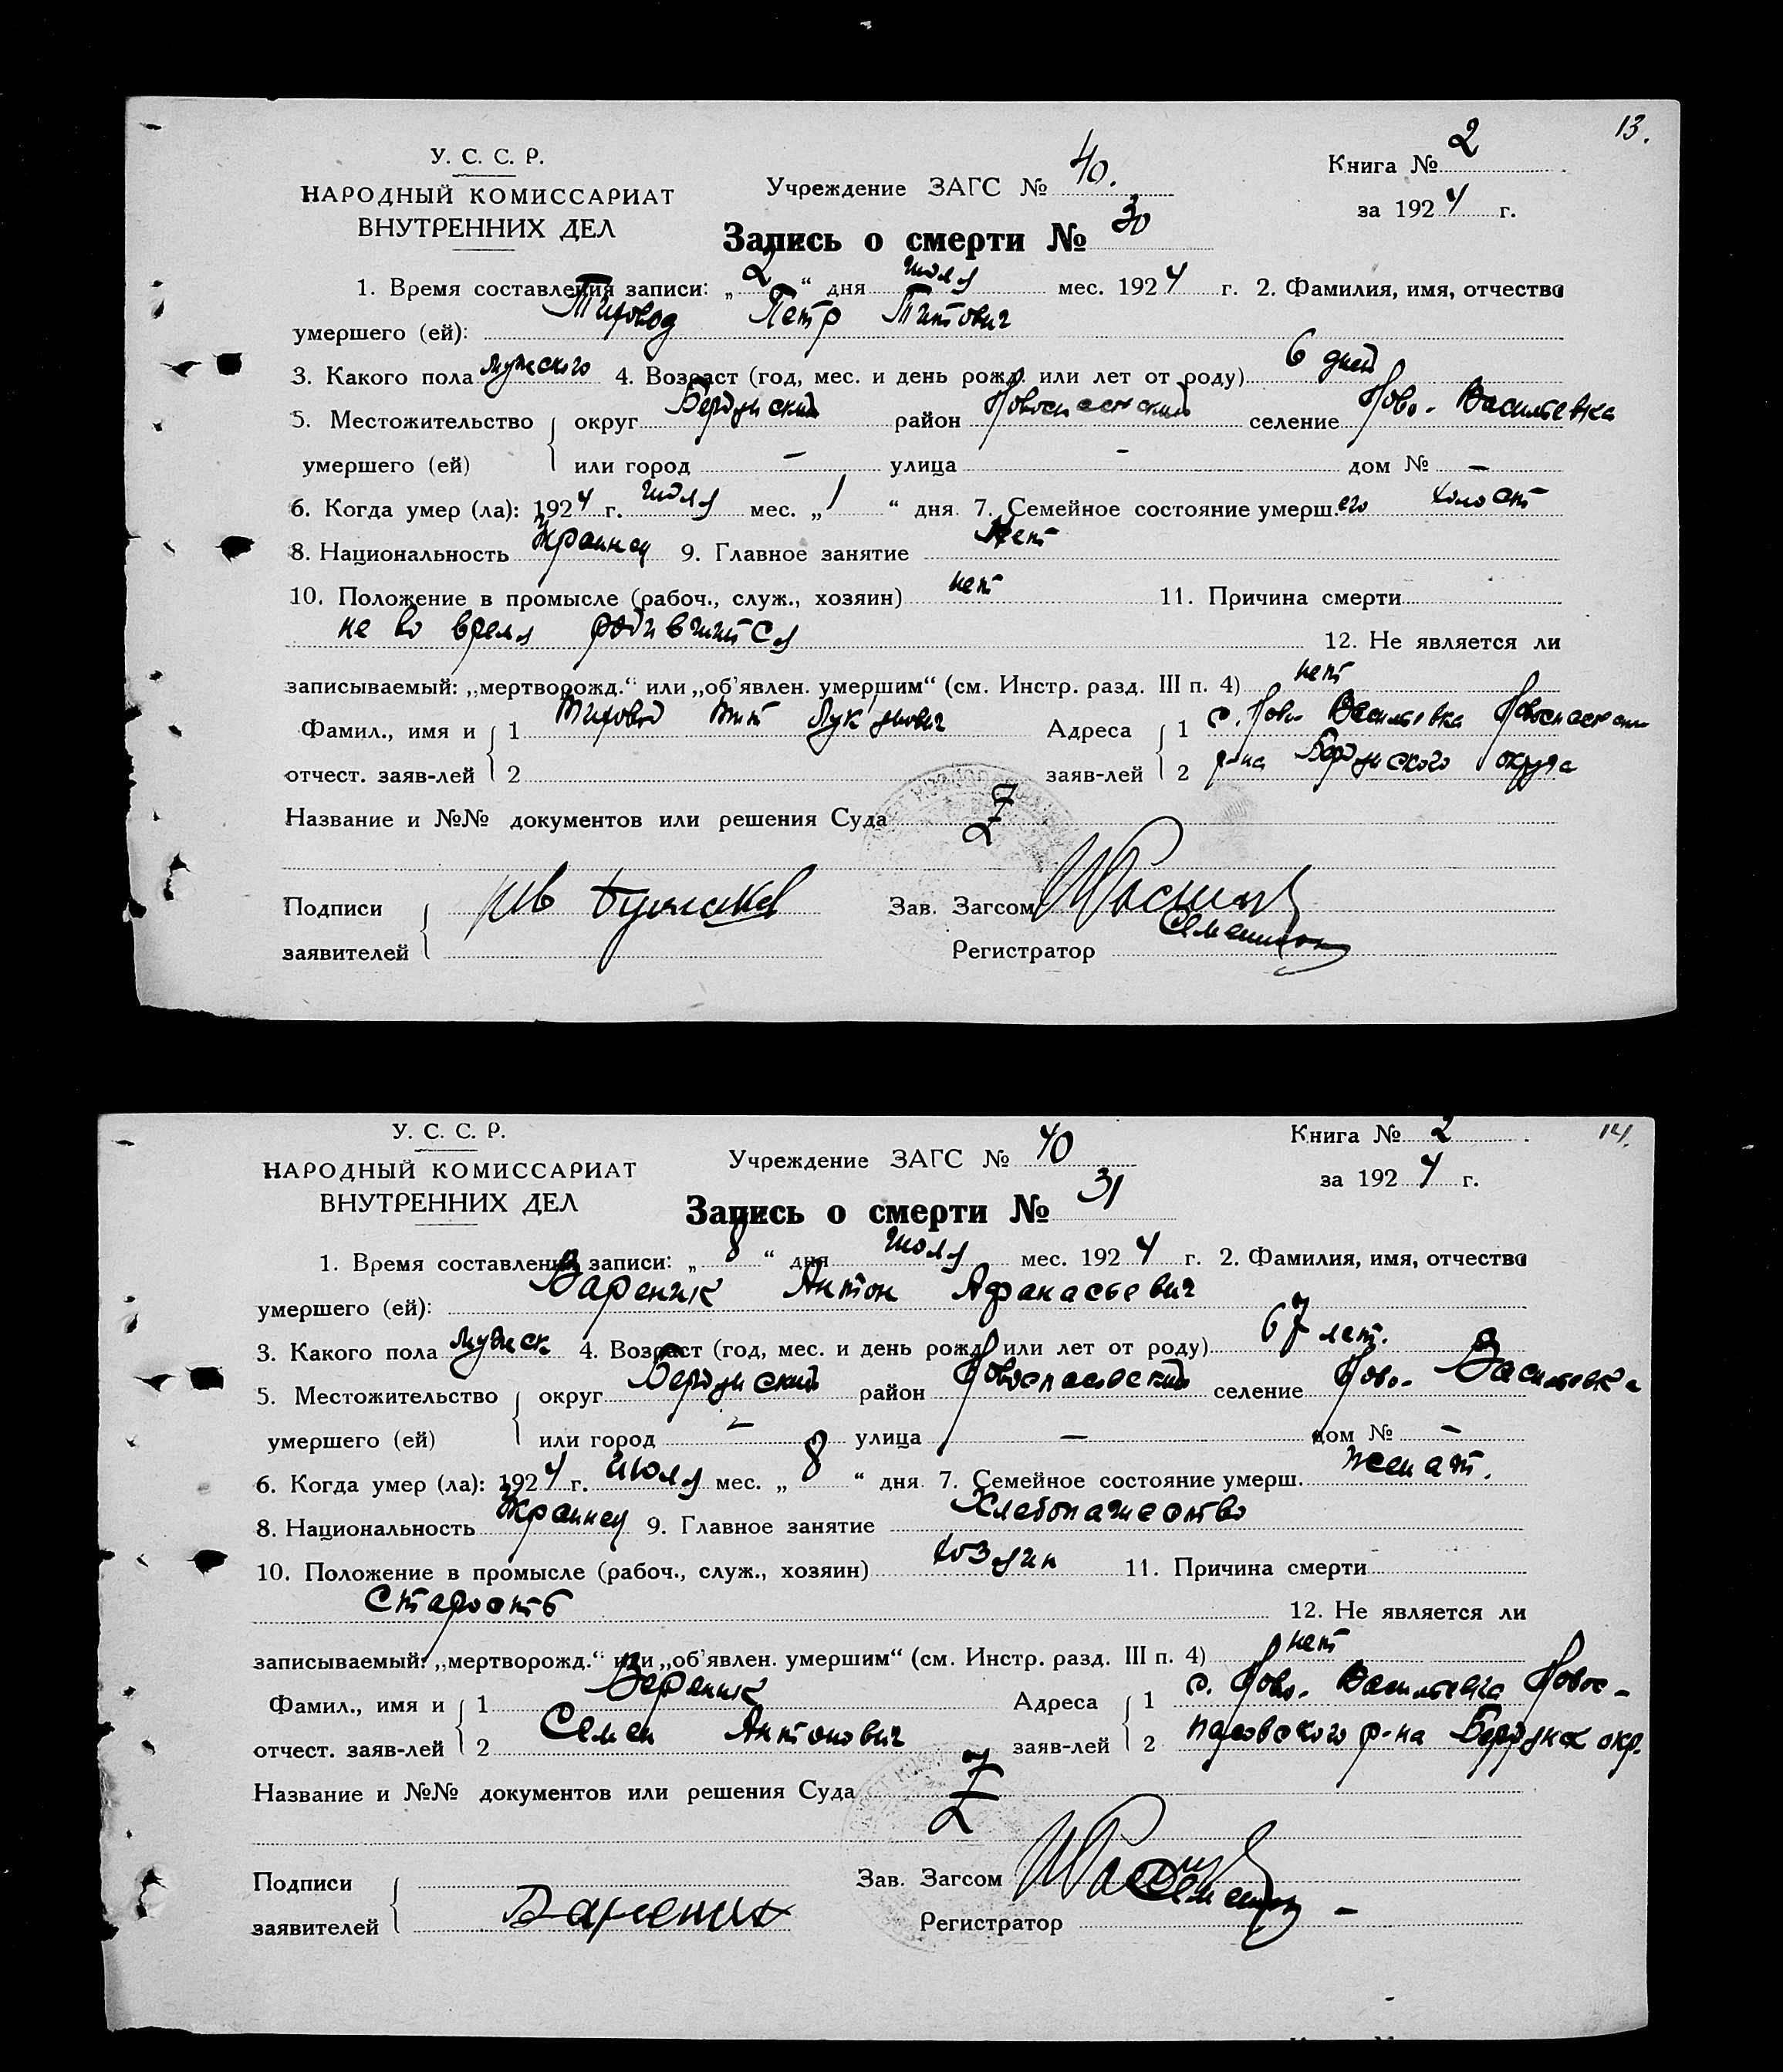 13.
У. С. С. Р.
НАРОДНЫЙ КОМИССАРИАТ
ВНУТРЕННИХ ДЕЛ
Учреждение ЗАГС № 40.
Книга № 2
за 1924 г.
Запись о смерти № 30
1. Время составления записи: „2“ дня июля мес. 1924 г. 2. Фамилия, имя, отчество
умершего (ей): Тиховод Петр Титович
3. Какого пола мужского 4. Возраст (год, мес. и день рожд. или лет от роду) 6 дней
5. Местожительство округ Бердянский район Новоспасовский селение Ново-Васильевка
умершего (ей) или город — улица - дом № —
6. Когда умер (ла): 1924 г. июля мес. „1“ дня 7. Семейное состояние умерш.его холост
8. Национальность Украинец 9. Главное занятие Нет
10. Положение в промысле (рабоч., служ., хозяин) нет 11. Причина смерти
не во время родившийся 12. Не является ли
записываемый: „мертворожд.“ или „об'явлен. умершим“ (см. Инстр. разд. III п. 4) нет
Фамил., имя и 1 Тиховод Тит Лукьянович Адреса 1 с. Ново-Васильевка
отчест. заяв-лей 2 заяв-лей 2 р-на Бердянского округа
Название и №№ документов или решения Суда
Подписи Зав. Загсом
заявителей Регистратор
14.
У. С. С. Р.
НАРОДНЫЙ КОМИССАРИАТ
ВНУТРЕННИХ ДЕЛ
Учреждение ЗАГС № 40
Книга № 2
за 1924 г.
Запись о смерти № 31
1. Время составления записи: „8“ дня июля мес. 1924 г. 2. Фамилия, имя, отчество
умершего (ей): Вареник Антон Афанасьевич
3. Какого пола мужск. 4. Возраст (год, мес. и день рожд. или лет от роду) 67 лет.
5. Местожительство округ Бердянский район Новоспасовский селение Ново-Васильевка
умершего (ей) или город — улица — дом № —
6. Когда умер (ла): 1924 г. июля мес. „8“ дня 7. Семейное состояние умерш. женат.
8. Национальность Украинец 9. Главное занятие Хлебопашество
10. Положение в промысле (рабоч., служ., хозяин) хозяин 11. Причина смерти
Старость 12. Не является ли
записываемый: „мертворожд.“ или „об'явлен. умершим“ (см. Инстр. разд. III п. 4) нет
Фамил., имя и 1 Вареник Адреса 1 с. Ново-Васильевка Новос-
отчест. заяв-лей 2 Семен Антонович заяв-лей 2 пасовского р-на окр.
Название и №№ документов или решения Суда
Подписи Зав. Загсом
заявителей Вареник Регистратор